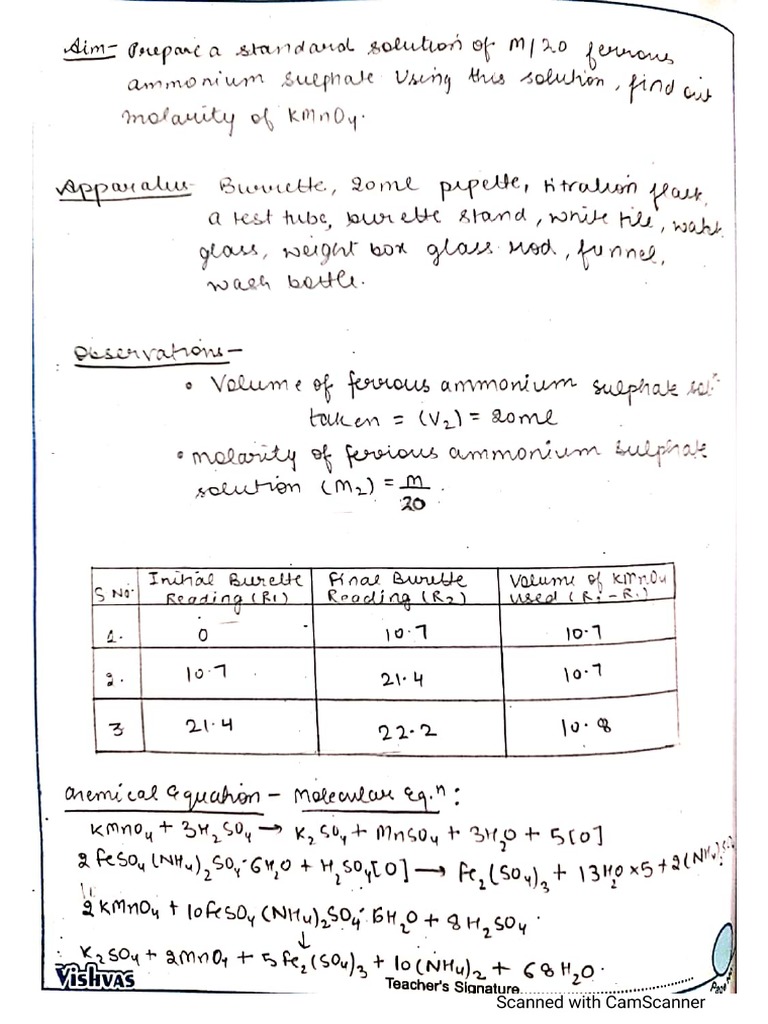 Aim- Prepare a standard solution of M/20 ferrous
ammonium sulphate Using this solution, find out
molarity of KMnO4.
Apparatus- Burrette, 20ml pipette, titration flask,
a test tube, burette stand, white tile, watch
glass, weight box glass rod, funnel,
wash bottle.
Observations-
• Volume of ferrous ammonium sulphate sol.
taken = (V2) = 20ml
• molarity of ferrious ammonium sulphate
solution (M2) = M/20.
S No. Initial Burette Reading (R1) Final Burette Reading (R2) Volume of KMnO4 used (R2-R1)
1. 0 10.7 10.7
2. 10.7 21.4 10.7
3 21.4 22.2 10.8
Chemical Equation - Molecular Eq.n:
KMnO4 + 3H2SO4 → K2SO4 + MnSO4 + 3H2O + 5[O]
2FeSO4(NH4)2SO4·6H2O + H2SO4[O] → Fe2(SO4)3 + 13H2O×5 + 2(NH4)
2KMnO4 + 10FeSO4(NH4)2SO4·6H2O + 8H2SO4.
↓
K2SO4 + 2MnO4 + 5Fe2(SO4)3 + 10(NH4)2 + 68H2O.
Vishvas
Teacher's Signature
Page
Scanned with CamScanner